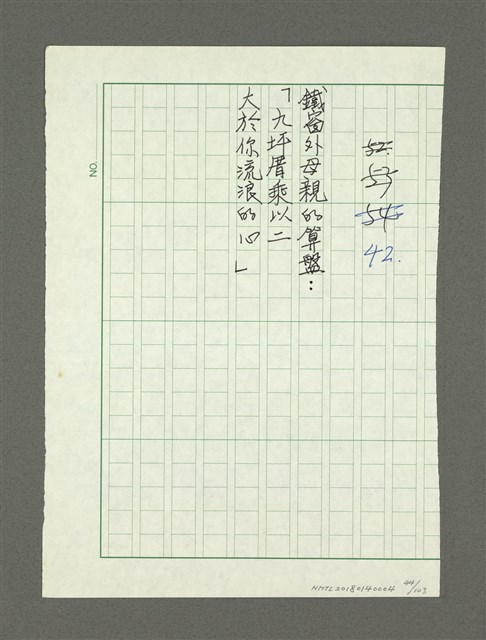 52.
53
54
42.
鐵窗外母親的算盤：
「九坪厝乘以二
大於你流浪的心」
NO.
NMTL20180140004 44/103